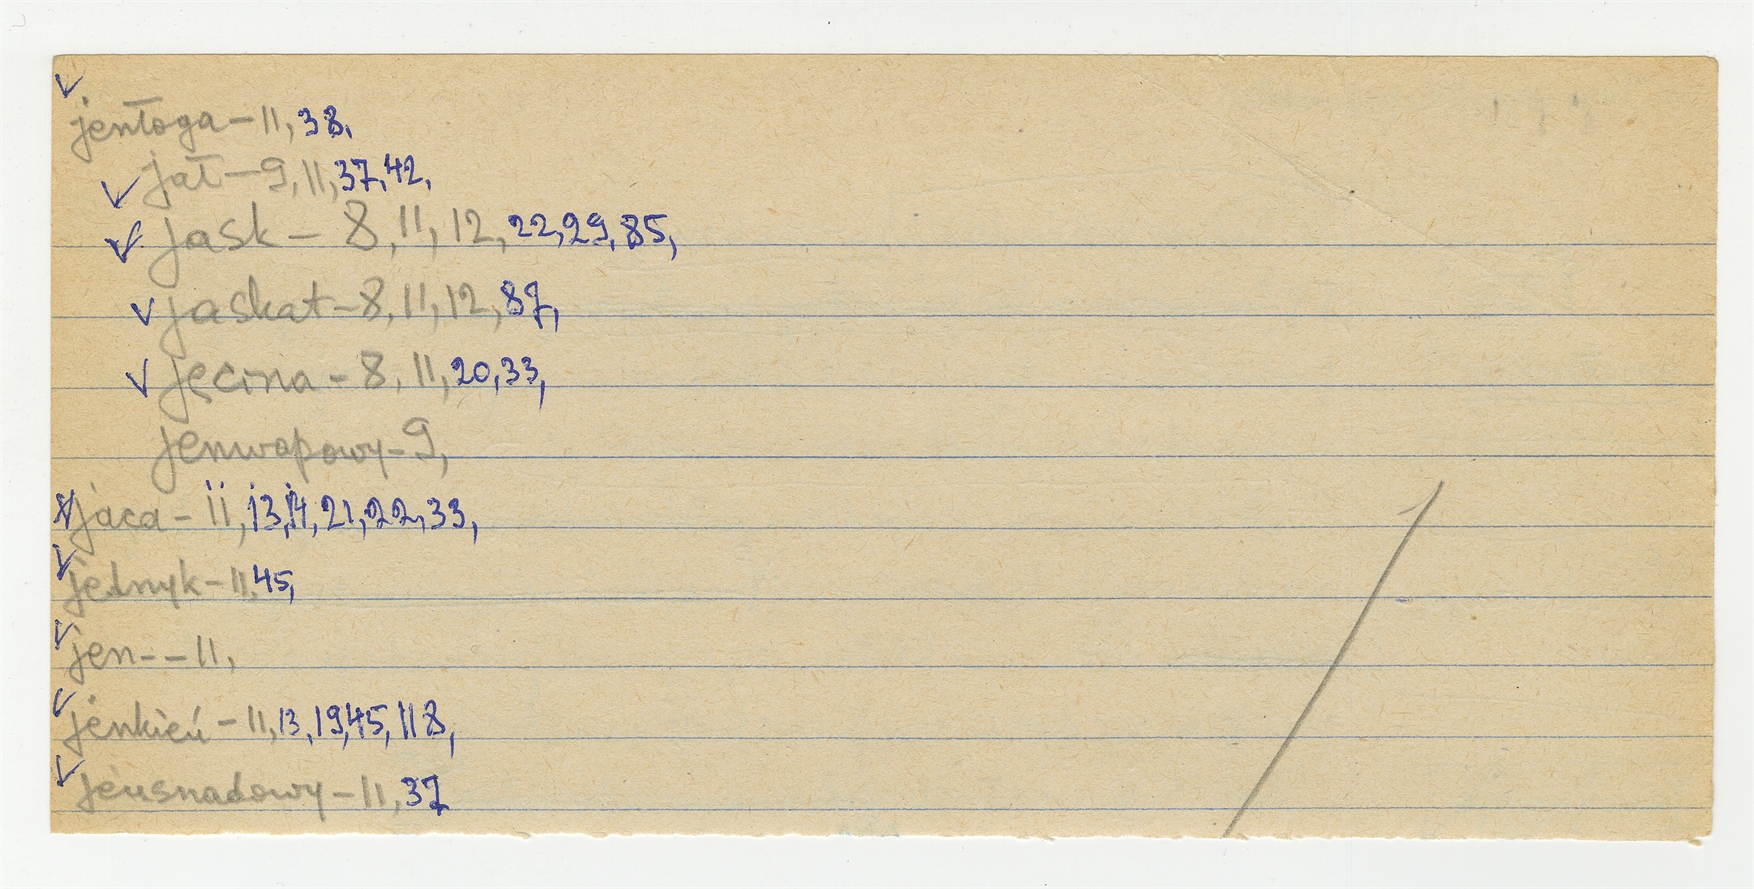 jentoga – 11, 38,
jat – 9, 11, 37, 42,
jask – 8, 11, 12, 22, 29, 85,
jaskat – 8, 11, 12, 87,
jęcina – 8, 11, 20, 33,
jenwopowy – 9,
jaca – 11, 13, 14, 21, 22, 33,
jednyk – 11, 45,
jen-- 11,
jenkień – 11, 13, 19, 45, 118,
– 11, 37